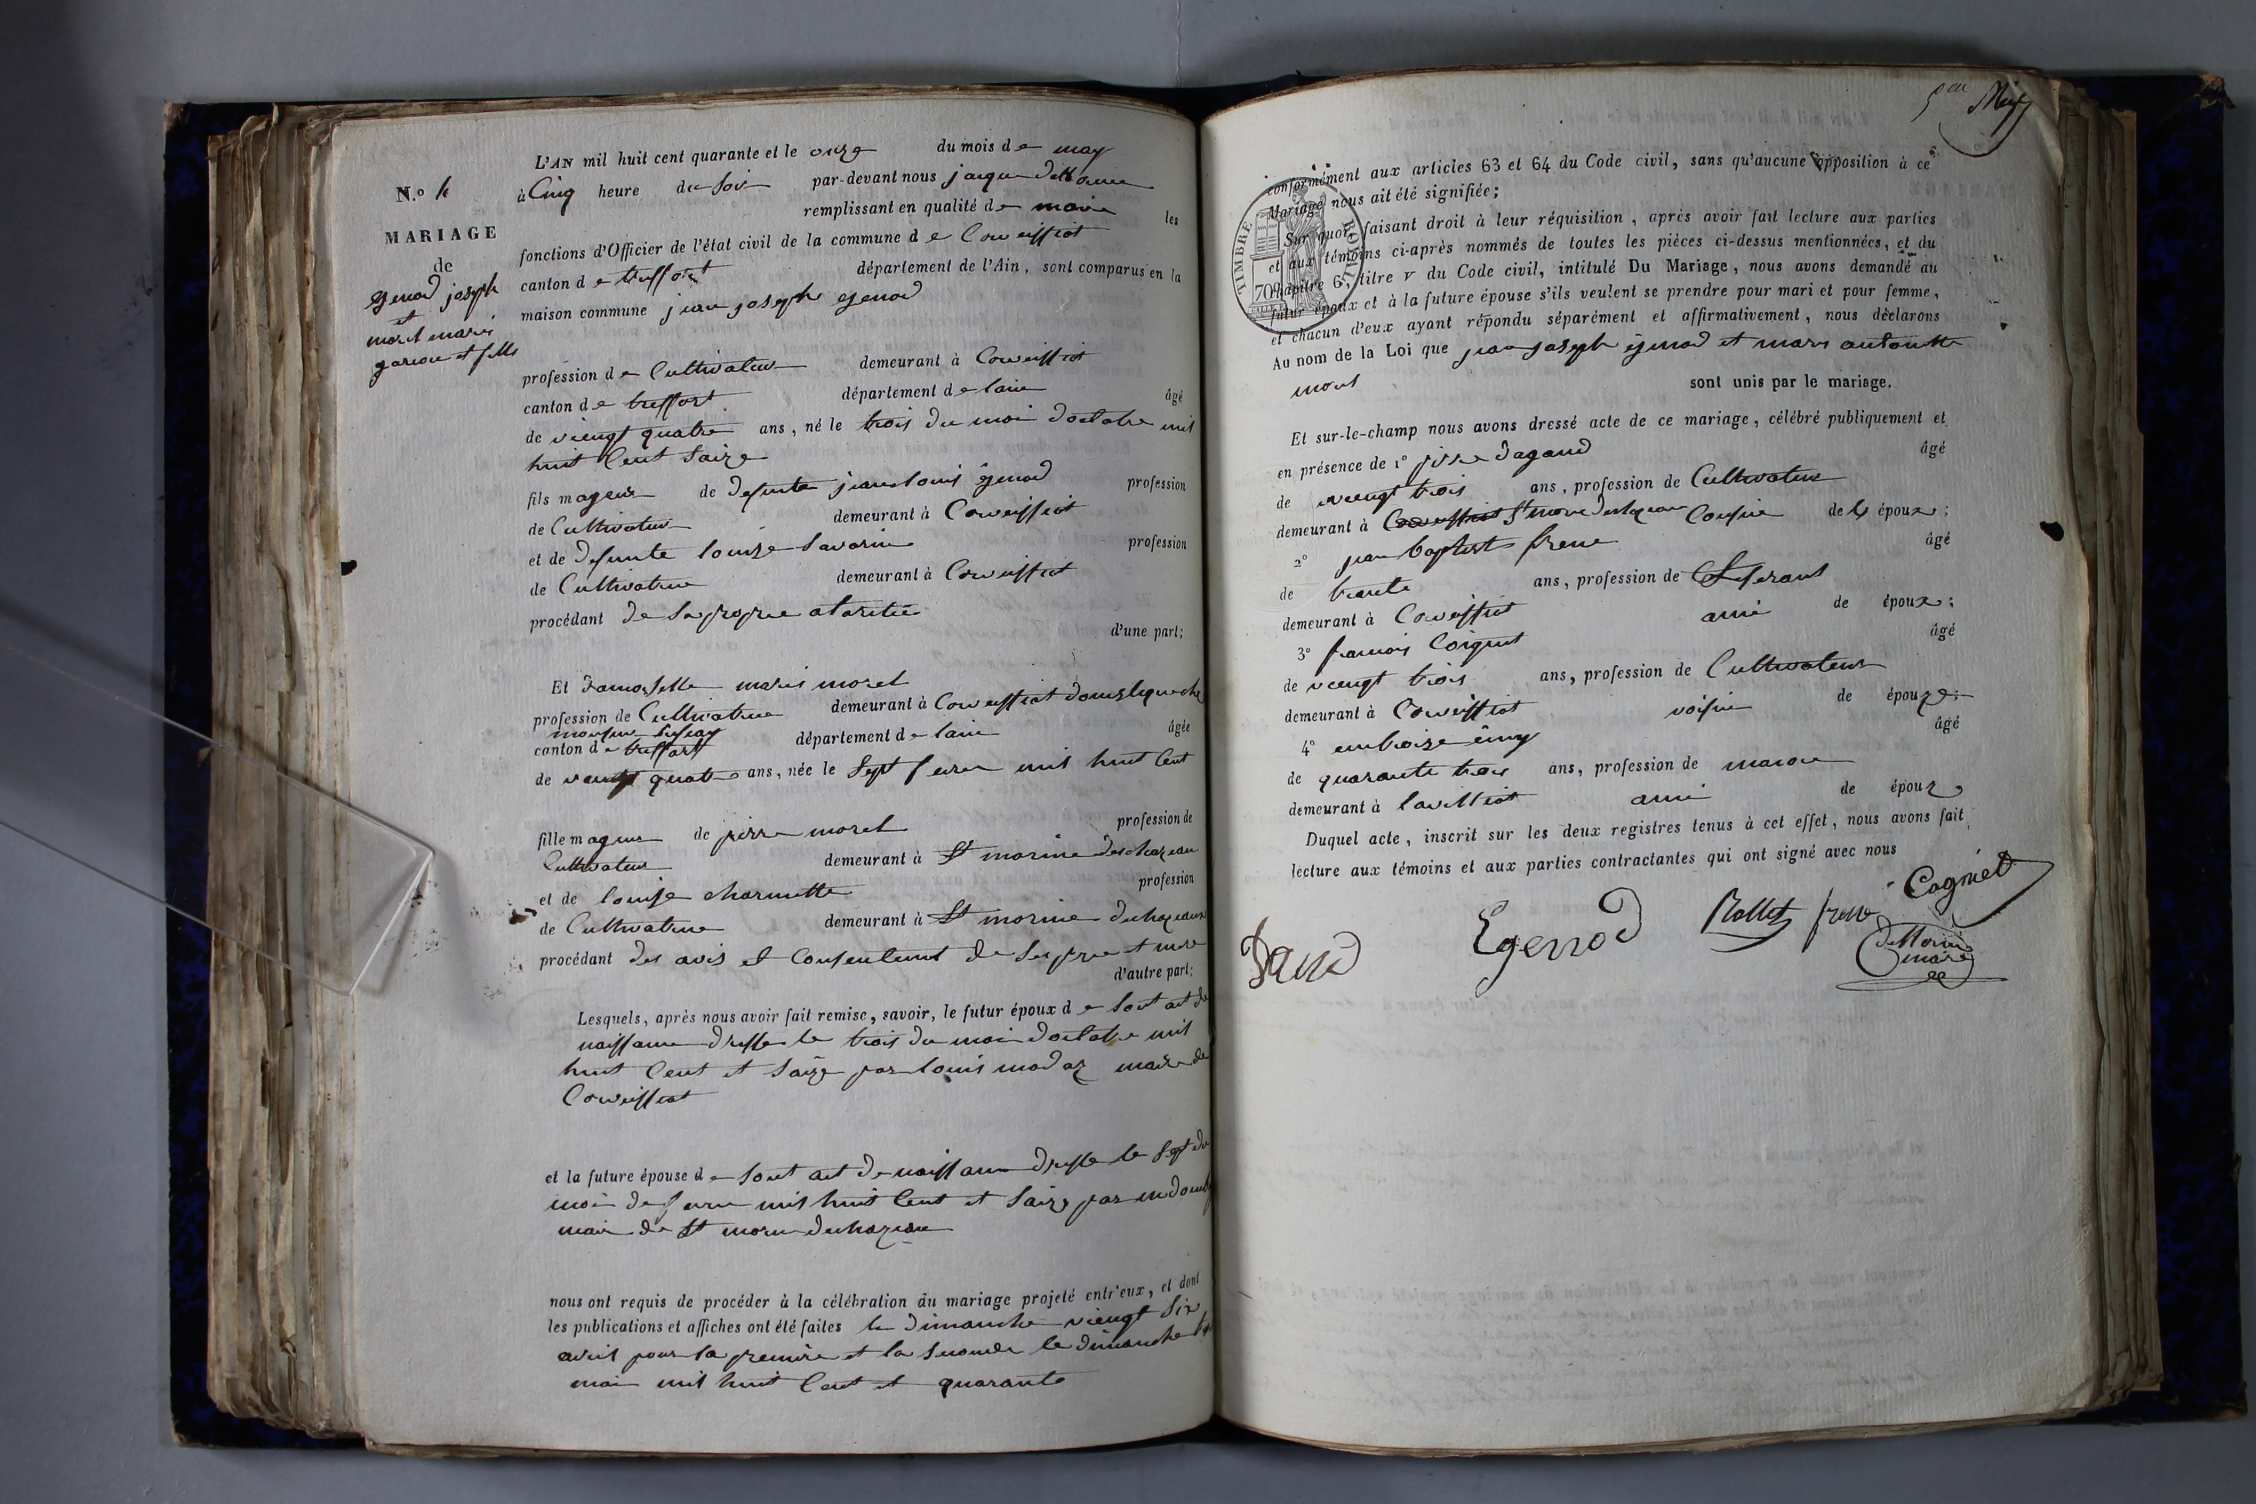 L'AN mil huit cent quarante et le onze du mois de may
à Cinq heure du soir par-devant nous jacque
remplissant en qualité de maire les
fonctions d'Officier de l'état civil de la commune de Corveissiat
canton de treffort département de l'Ain, sont comparus en la
maison commune jean joseph egenod
N.° 4
MARIAGE
de
Egenod joseph
et
morel marie
garson et fille
profession de Cultivateur demeurant à Corveissiat
canton de treffort département de lain âgé
de viengt quatre ans, né le trois du moi doctobre mil
huit Cent saize
fils mageur de defunte jean louis egenod profession
de Cultivateur demeurant à Corveissiat
et de defunte louise savarin profession
de Cultivatrice demeurant à Corveissiat
procédant de sa propre
d'une part;
Et damoiselle marie morel
profession de Cultivatrice demeurant à Corveissiat
canton de treffort département de lain âgée
de viengt quatre ans, née le sept mil huit Cent
fille mageure de pierre morel profession de
Cultivateur demeurant à St
et de louise charnette profession
de Cultivatrice demeurant à St
procédant des avis et Consentement de ses pere et mere
d'autre part;
Lesquels, après nous avoir fait remise, savoir, le futur époux de sont act de
naissance dresse le trois du moi doctobre mil
huit Cent et saize par louis maire de
Corveissiat
et la future épouse de sont act de naissance dresse le sept du
moi de mil huit Cent et saize par
maire de St
nous ont requis de procéder à la célébration du mariage projeté entr'eux, et dont
les publications et affiches ont été faites le dimanche viengt six
avril pour la premire et la seconde le dimanche
mai mil huit Cent et quarante
conformément aux articles 63 et 64 du Code civil, sans qu'aucune opposition à ce
Mariage nous ait été signifiée;
TIMBRE ROYAL
70
Sur quoi, faisant droit à leur réquisition, après avoir fait lecture aux parties
et aux témoins ci-après nommés de toutes les pièces ci-dessus mentionnées, et du
chapitre 6, titre V du Code civil, intitulé Du Mariage, nous avons demandé au
futur époux et à la future épouse s'ils veulent se prendre pour mari et pour femme,
et chacun d'eux ayant répondu séparément et affirmativement, nous déclarons
Au nom de la Loi que jean joseph egenod et marie antoinette
morel sont unis par le mariage.
Et sur-le-champ nous avons dressé acte de ce mariage, célébré publiquement et
en présence de 1° pierre dagand âgé
de viengt trois ans, profession de Cultivateur
demeurant à Cousin de époux;
2° jean baptiste frene âgé
de trente ans, profession de
demeurant à Corveissiat ami de époux;
3° francois Coignet âgé
de viengt trois ans, profession de Cultivateur
demeurant à Corveissiat voisin de épouze;
4° âgé
de quarante trois ans, profession de macon
demeurant à ami de épouz
Duquel acte, inscrit sur les deux registres tenus à cet effet, nous avons fait
lecture aux témoins et aux parties contractantes qui ont signé avec nous
Egenod Cogniet
maire